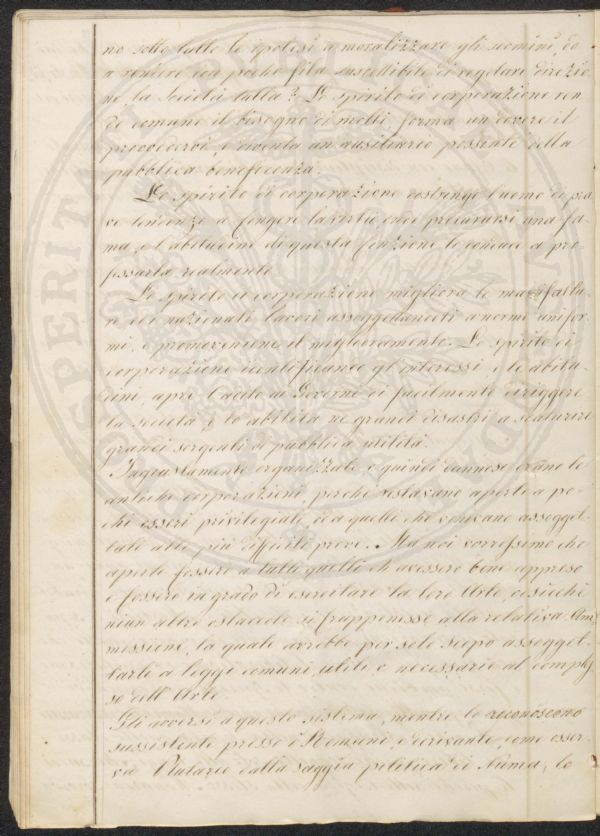 no sotto tutte le ipotesi a moralizzare gli uomini, ed
a rendere con poche fila suscettibile di regolare direzio
ne la Società tutta? Lo spirito di corporazione ren
de comune il bisogno di molti, forma un dovere il
provvedervi, e diventa un ausiliario possente della
pubblica beneficenza.
Lo spirito di corporazione costringe l'uomo di pra
ve tendenze a fingere la virtù onde procurarsi una fa
ma, e l'abitudine di questa finzione lo conduce a pro
fessarla realmente.
Lo spirito di corporazione migliora le manifattu
re ed i nazionali lavori assoggettandoli a norme unifor
mi, e promovendone il miglioramento. Lo spirito di
corporazione identificando gl'interessi, e le abitu
dini, apre l'adito ai Governi di facilmente dirigere
la società, e lo abilita ne' grandi disastri a scaturire
grandi sorgenti di pubblica utilità.
Ingiustamente organizzate e quindi dannose erano le
antiche corporazioni, perché restavano aperte a po
chi esseri privilegiati, od a quelli che venivano assogget
tati alle più difficili prove. Ma noi vorressimo che
aperte fossero a tutti quelli ch'avessero bene appreso
e fossero in grado di esercitare la loro Arte, e sicché
niun altro ostacolo si frapponesse alla relativa Am
missione, la quale avrebbe per solo scopo assogget
tarli a leggi comuni, utili e necessarie al comples
so dell'Arte.
Gli avversi a questo sistema, mentre lo riconoscono
sussistente presso i Romani, e derivante, come osser
va Plutarco dalla saggia politica di Numa, lo